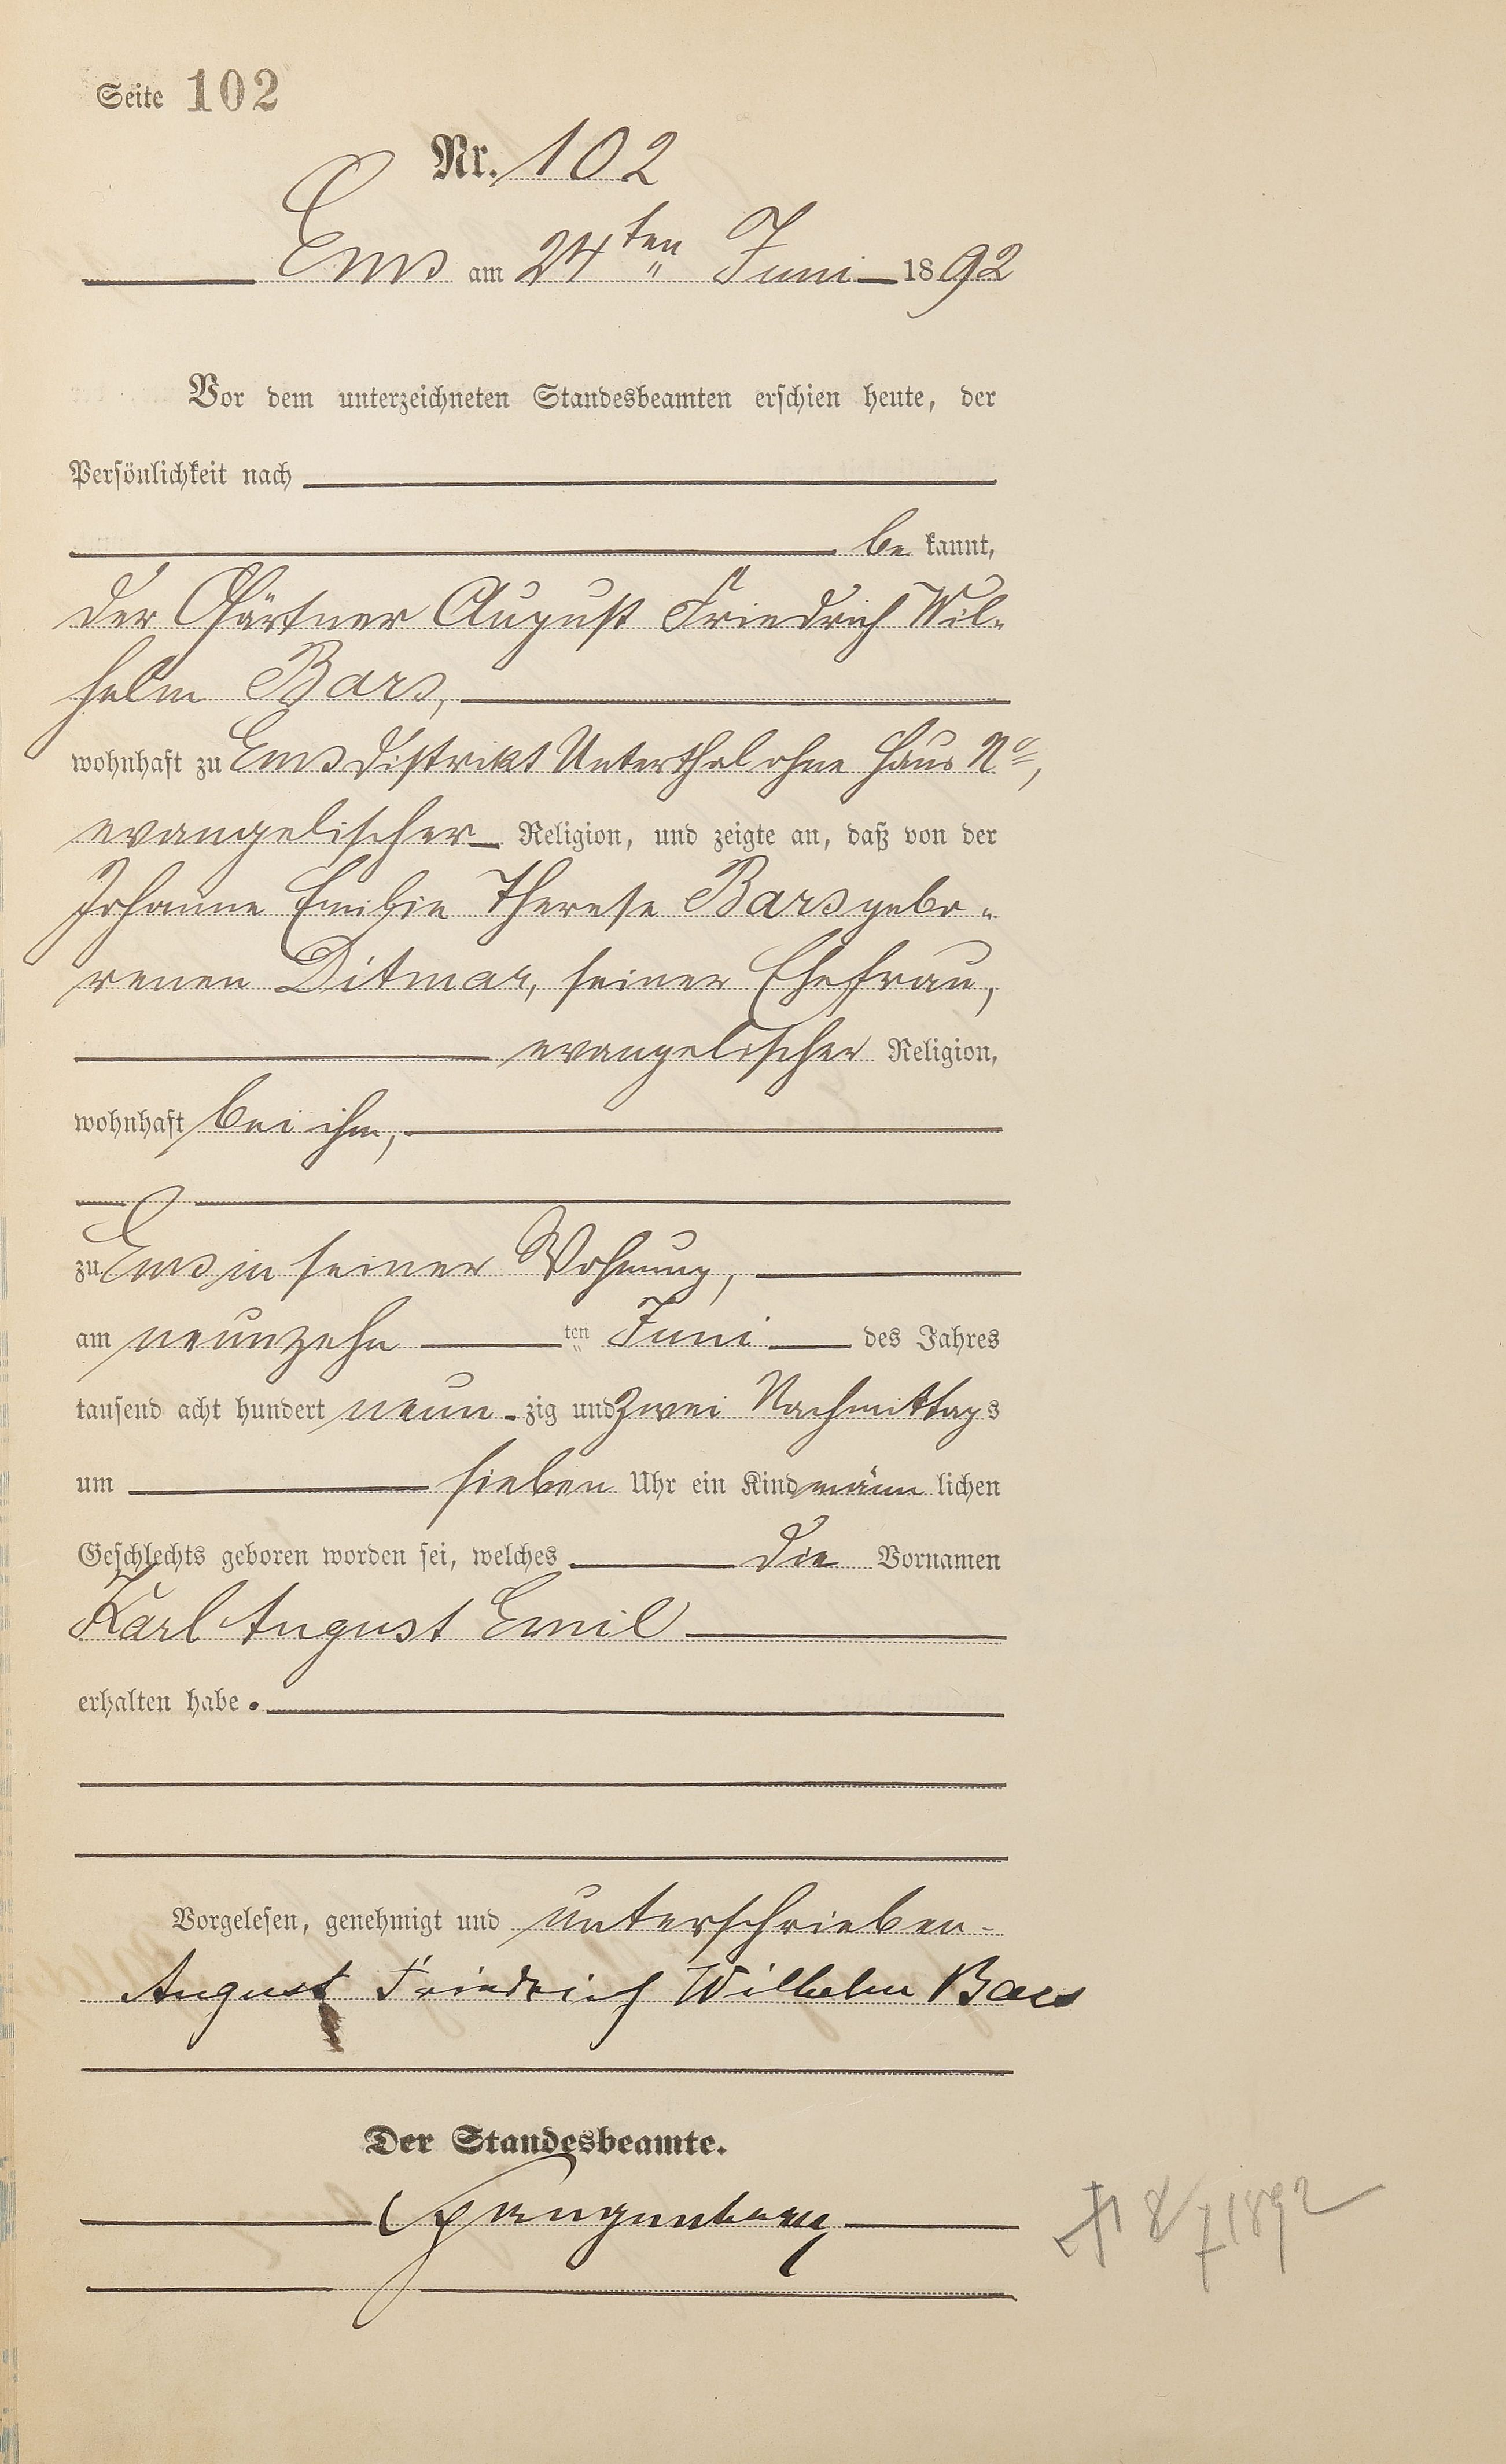 Seite 102
Nr. 102
Ems am 24ten Juni 1892
Vor dem unterzeichneten Standesbeamten erschien heute, der
Persönlichkeit nach
be kannt,
der Gärtner August Friedrich Wil-
helm Bars,
wohnhaft zu Ems Distrikt Unterthal ohne Haus No,
evangelischer Religion, und zeigte an, daß von der
Johanne Emilie Therese Bars gebo-
renen Ditmar, seiner Ehefrau,
evangelischer Religion,
wohnhaft bei ihm,
zu Ems in seiner Wohnung,
am neunzehn ten Juni des Jahres
tausend acht hundert neun-zig und zwei Nachmittags
um sieben Uhr ein Kind männlichen
Geschlechts geboren worden sei, welches die Vornamen
Karl August Emil
erhalten habe.
Vorgelesen, genehmigt und unterschrieben.
August Friedrich Wilhelm Bars
Der Standesbeamte.
1892